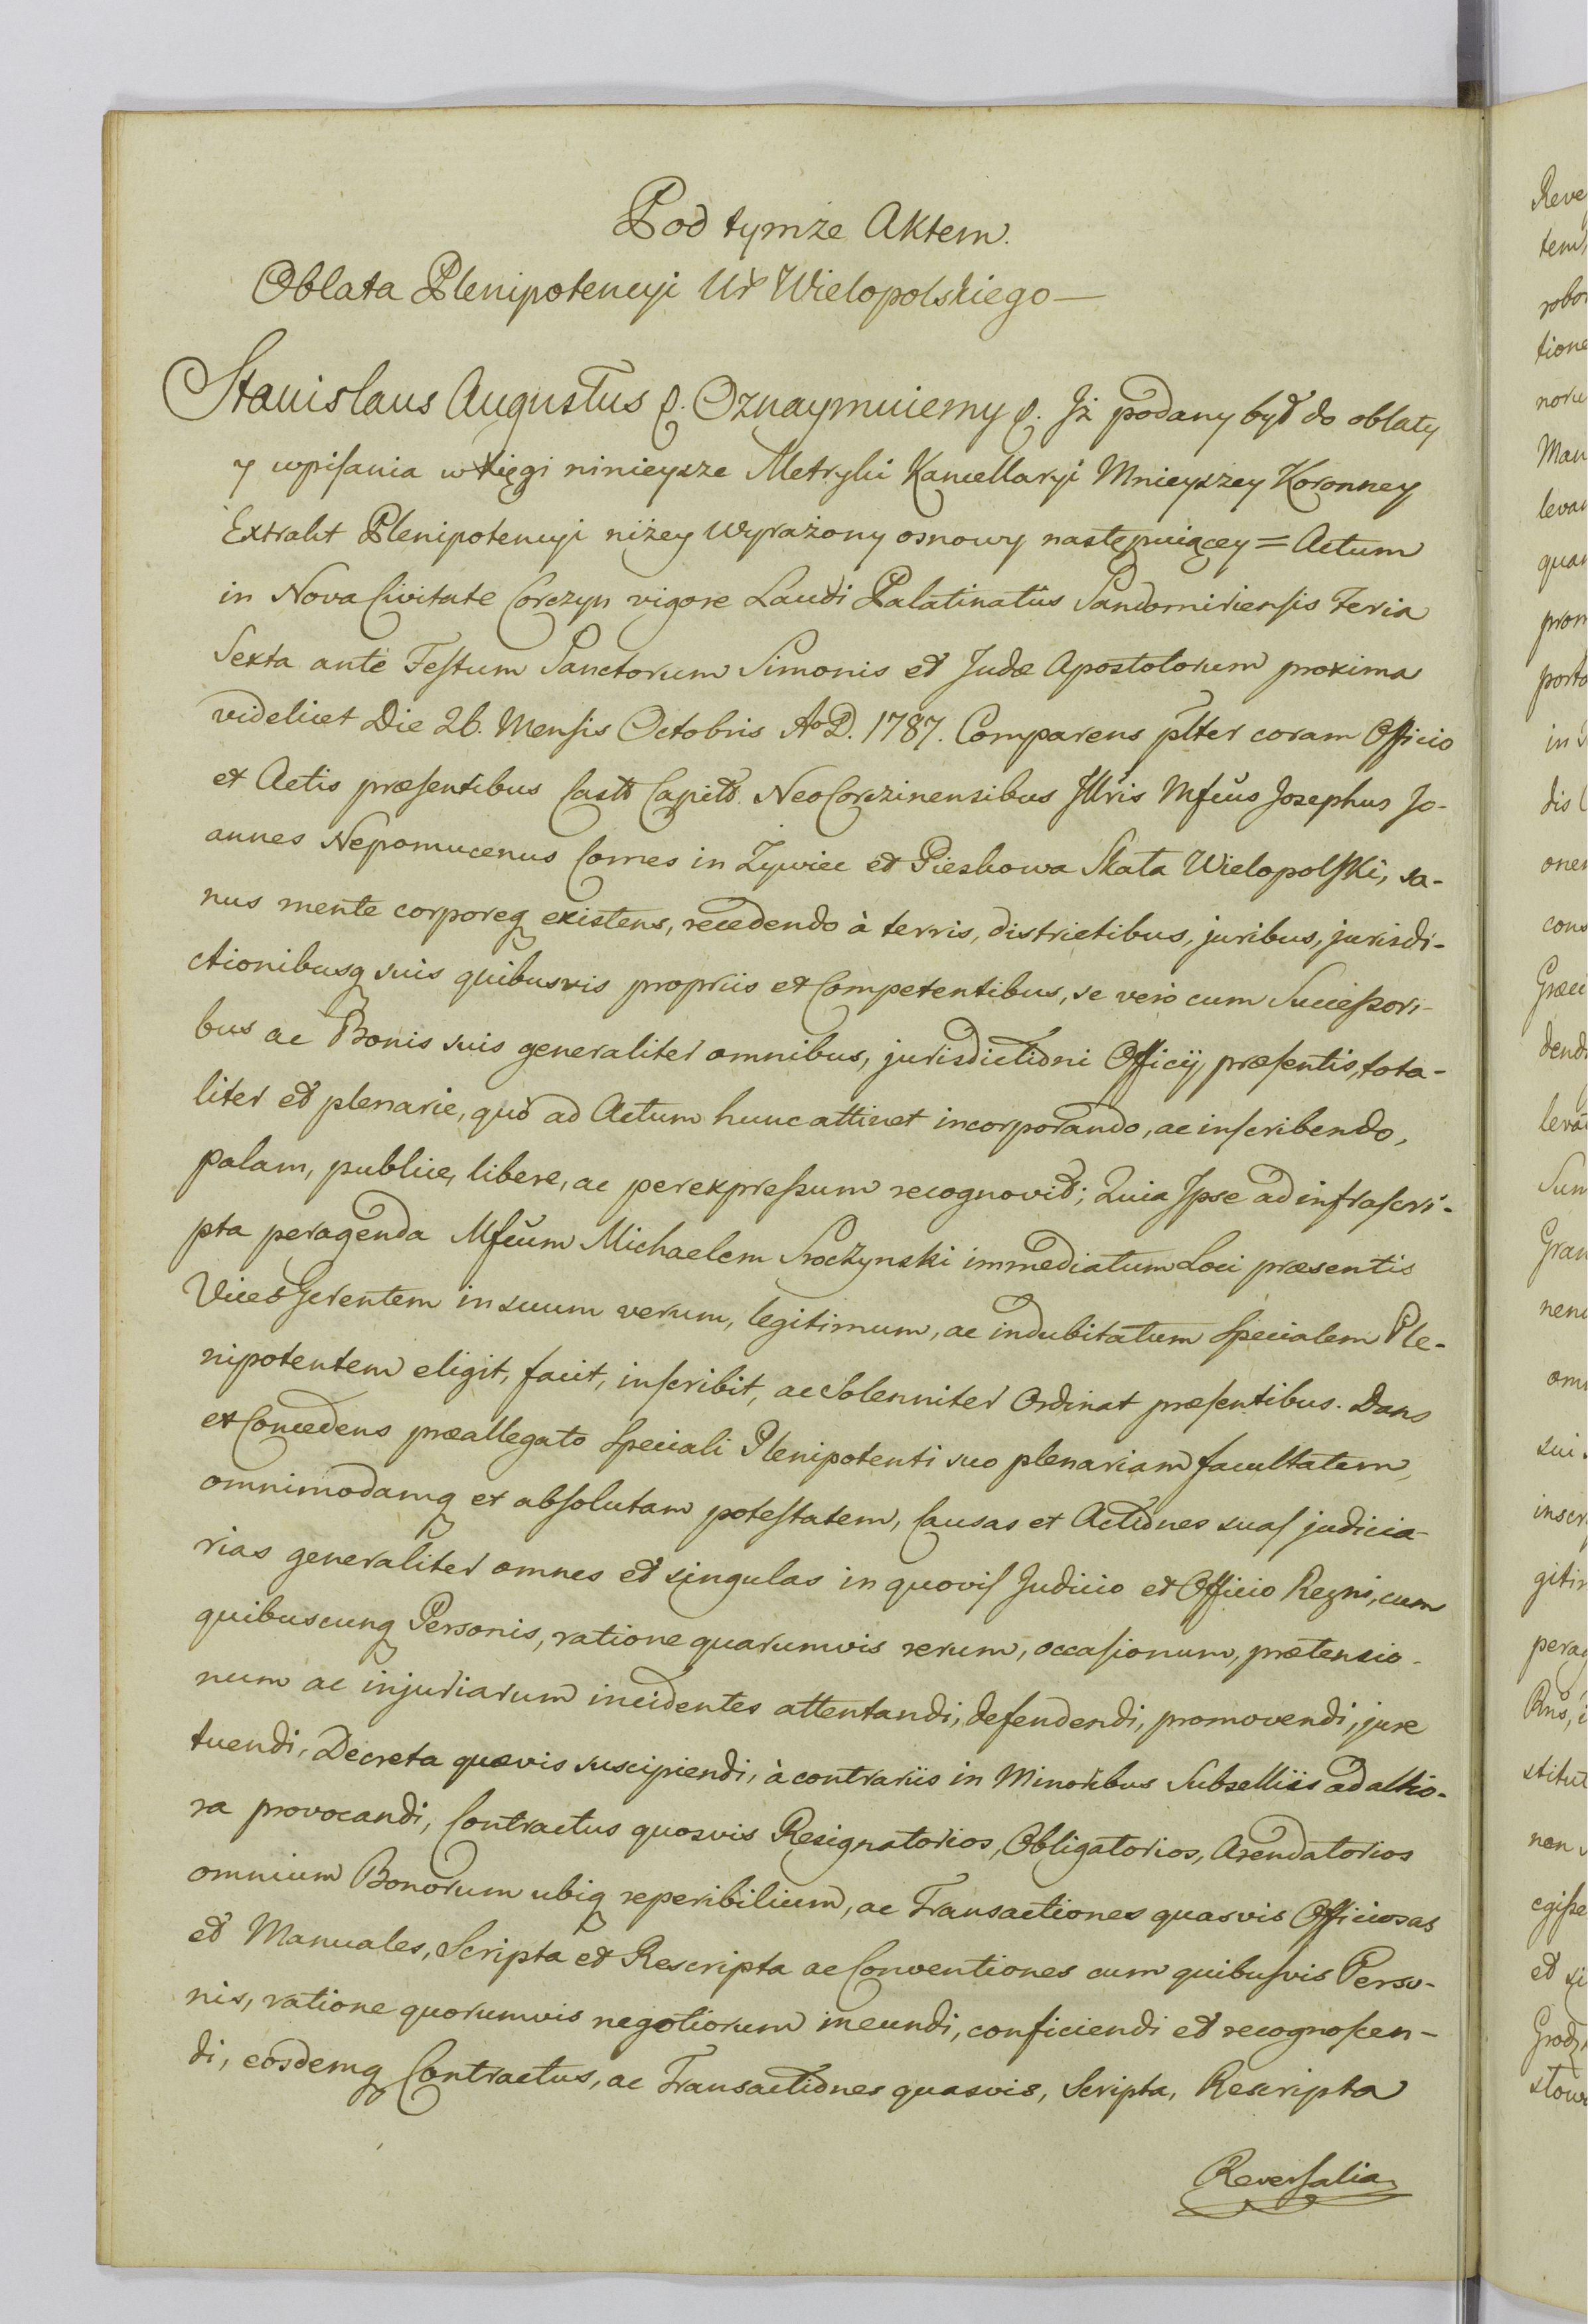 Pod tymże Aktem.
Oblata Plenipotencyi Ur̃ Wielopolskiego —
Stanislaus Augustus &. Oznaymuiemy &. Iż podany był do oblaty
y wpiſania w Xięgi ninieysze Metryki Kancellaryi Mnieyszey Koronney
Extrakt Plenipotencyi niżey wyrażony osnowy następuiącey = Actum
in Nova Civitate Corczyn vigore Laudi Palatinatûs Sandomiriensis Feria
Sexta ante Feſtum Sanctorum Simonis et Judæ Apostolorum proxima
videlicet Die 26. Menſis Octobris Ao D. 1787. Comparens p̃lter coram Officio
et Actis præſentibus Castr̃ Capitl̃. NeoCorczinensibus Illr̃is Mf̃cus Josephus Jo-
annes Nepomucenus Comes in Zywiec et Pieskowa Skała Wielopolſki, sa-
nus mente corporeq existens, recedendo à terris, districtibus, juribus, jurisdi-
ctionibusq suis quibusvis propriis et Competentibus, se vero cum Succeſsori-
bus ac Bonis suis generaliter omnibus, jurisdictioni Officij, præſentis, tota-
liter et plenarie, quò ad Actum hunc attinet incorporando, ac inſcribendo,
palam, publice, libere, ac per expreſsum recognovit; Quia Ipse ad infraſcri-
pta peragenda Mf̃cum Michaelem Sroczynski immediatum Loci præsentis
Vices Gerentem in suum verum, legitimum, ac indubitatum Specialem Ple-
nipotentem eligit, facit, inſcribit, ac Solenniter Ordinat præſentibus. Dans
et Concedens præallegato Speciali Plenipotenti suo plenariam facultatem,
omnimodamq et abſolutam poteſtatem, Causas et Actiones suaſ judicia-
rias generaliter omnes et singulas in quoviſ Judicio et Officio Regni, cum
quibuscunq Personis, ratione quarumvis rerum, occaſionum, prætensio-
num ac injuriarum incidentes attentandi, defendendi, promovendi, jure
tuendi, Decreta quævis suscipiendi, à contrariis in Minoribus Subselliis ad altio-
ra provocandi, Contractus quosvis Resignatorios, Obligatorios, Arendatorios
omnium Bonorum ubiq reperibilium, ac Transactiones quasvis Officiosas
et Manuales, Scripta et Rescripta ac Conventiones cum quibuſvis Perso-
nis, ratione quorumvis negotiorum ineundi, conficiendi et recognoſcen-
di, eosdemq Contractus, ac Transactiones quasvis, Scripta, Rescripta
Reverſalia